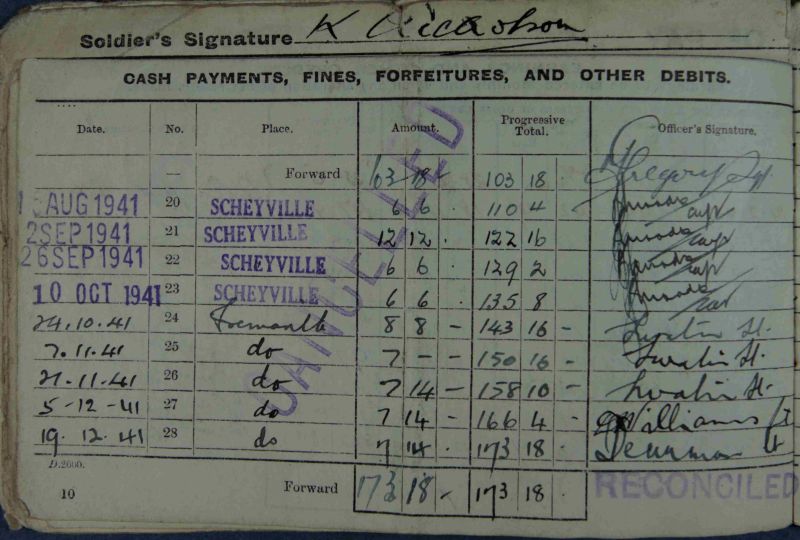 Soldier's Signature K Nicholson
CASH PAYMENTS, FINES, FORFEITURES, AND OTHER DEBITS.
Date. No. Place. Amount. Progressive Total. Officer's Signature.
— Forward 103 18 103 18 . Gregory
AUG 1941 20 SCHEYVILLE 6 6 . 110 4 Capt
2 SEP 1941 21 SCHEYVILLE 12 12 . 122 16 Capt
26 SEP 1941 22 SCHEYVILLE 6 6 . 129 2 Capt
10 OCT 1941 23 SCHEYVILLE 6 6 . 135 8 Capt
24.10.41 24 Fremantle 8 8 – 143 16 – Lt.
7.11.41 25 do 7 – – 150 16 – Lt.
21.11.41 26 do 7 14 – 158 10 – Lt.
5-12-41 27 do 7 14 – 166 4 – Williams Lt
19.12.41 28 do 7 14 . 173 18 . Lt
CANCELLED
D.2600.
10 Forward 173 18 - 173 18 . RECONCILED